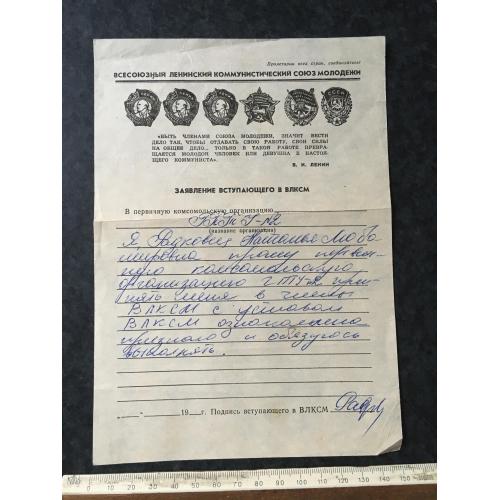 Пролетарии всех стран, соединяйтесь!
ВСЕСОЮЗНЫЙ ЛЕНИНСКИЙ КОММУНИСТИЧЕСКИЙ СОЮЗ МОЛОДЕЖИ
«БЫТЬ ЧЛЕНАМИ СОЮЗА МОЛОДЕЖИ, ЗНАЧИТ ВЕСТИ
ДЕЛО ТАК, ЧТОБЫ ОТДАВАТЬ СВОЮ РАБОТУ, СВОИ СИЛЫ
НА ОБЩЕЕ ДЕЛО... ТОЛЬКО В ТАКОЙ РАБОТЕ ПРЕВРА-
ЩАЕТСЯ МОЛОДОЙ ЧЕЛОВЕК ИЛИ ДЕВУШКА В НАСТОЯ-
ЩЕГО КОММУНИСТА».
В. И. ЛЕНИН
ЗАЯВЛЕНИЕ ВСТУПАЮЩЕГО В ВЛКСМ
В первичную комсомольскую организацию
(название организации)
Я, Наталья Любо
мировна прошу первич-
ную комсомольскую
организацию при-
нять меня в члены
ВЛКСМ с уставом
ВЛКСМ ознакомлена
признаю и обязуюсь
выполнять.
„__"__19__г. Подпись вступающего в ВЛКСМ
0 10 20 30 40 50 60 70 80 90 100 110 120 130 140 150